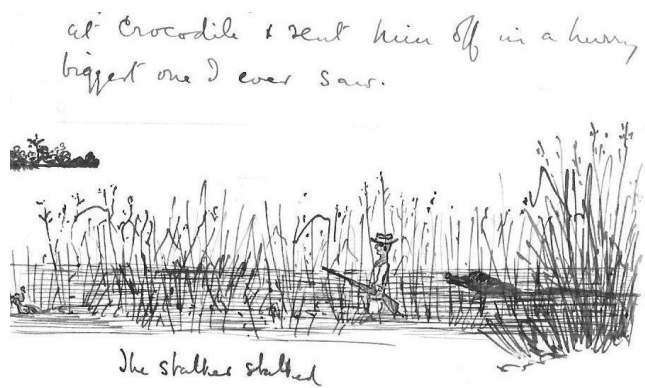 at Crocodile & sent him off in a hurry
biggest one I ever saw.
The stalker stalked